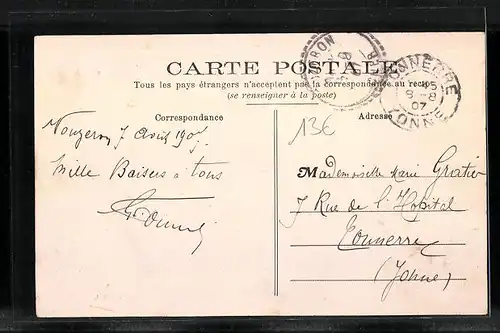 CARTE POSTALE
Tous les pays étrangers n'acceptent pas la correspondance au recto
(se renseigner à la poste)
Correspondance
Adresse
TONNERRE
8 - 8
07
YONNE
13€
7 Août 1907
Mille Baisers à tous
Mademoiselle Marie Gratier
7 Rue de l'Hopital
Tonnerre
(Yonne)